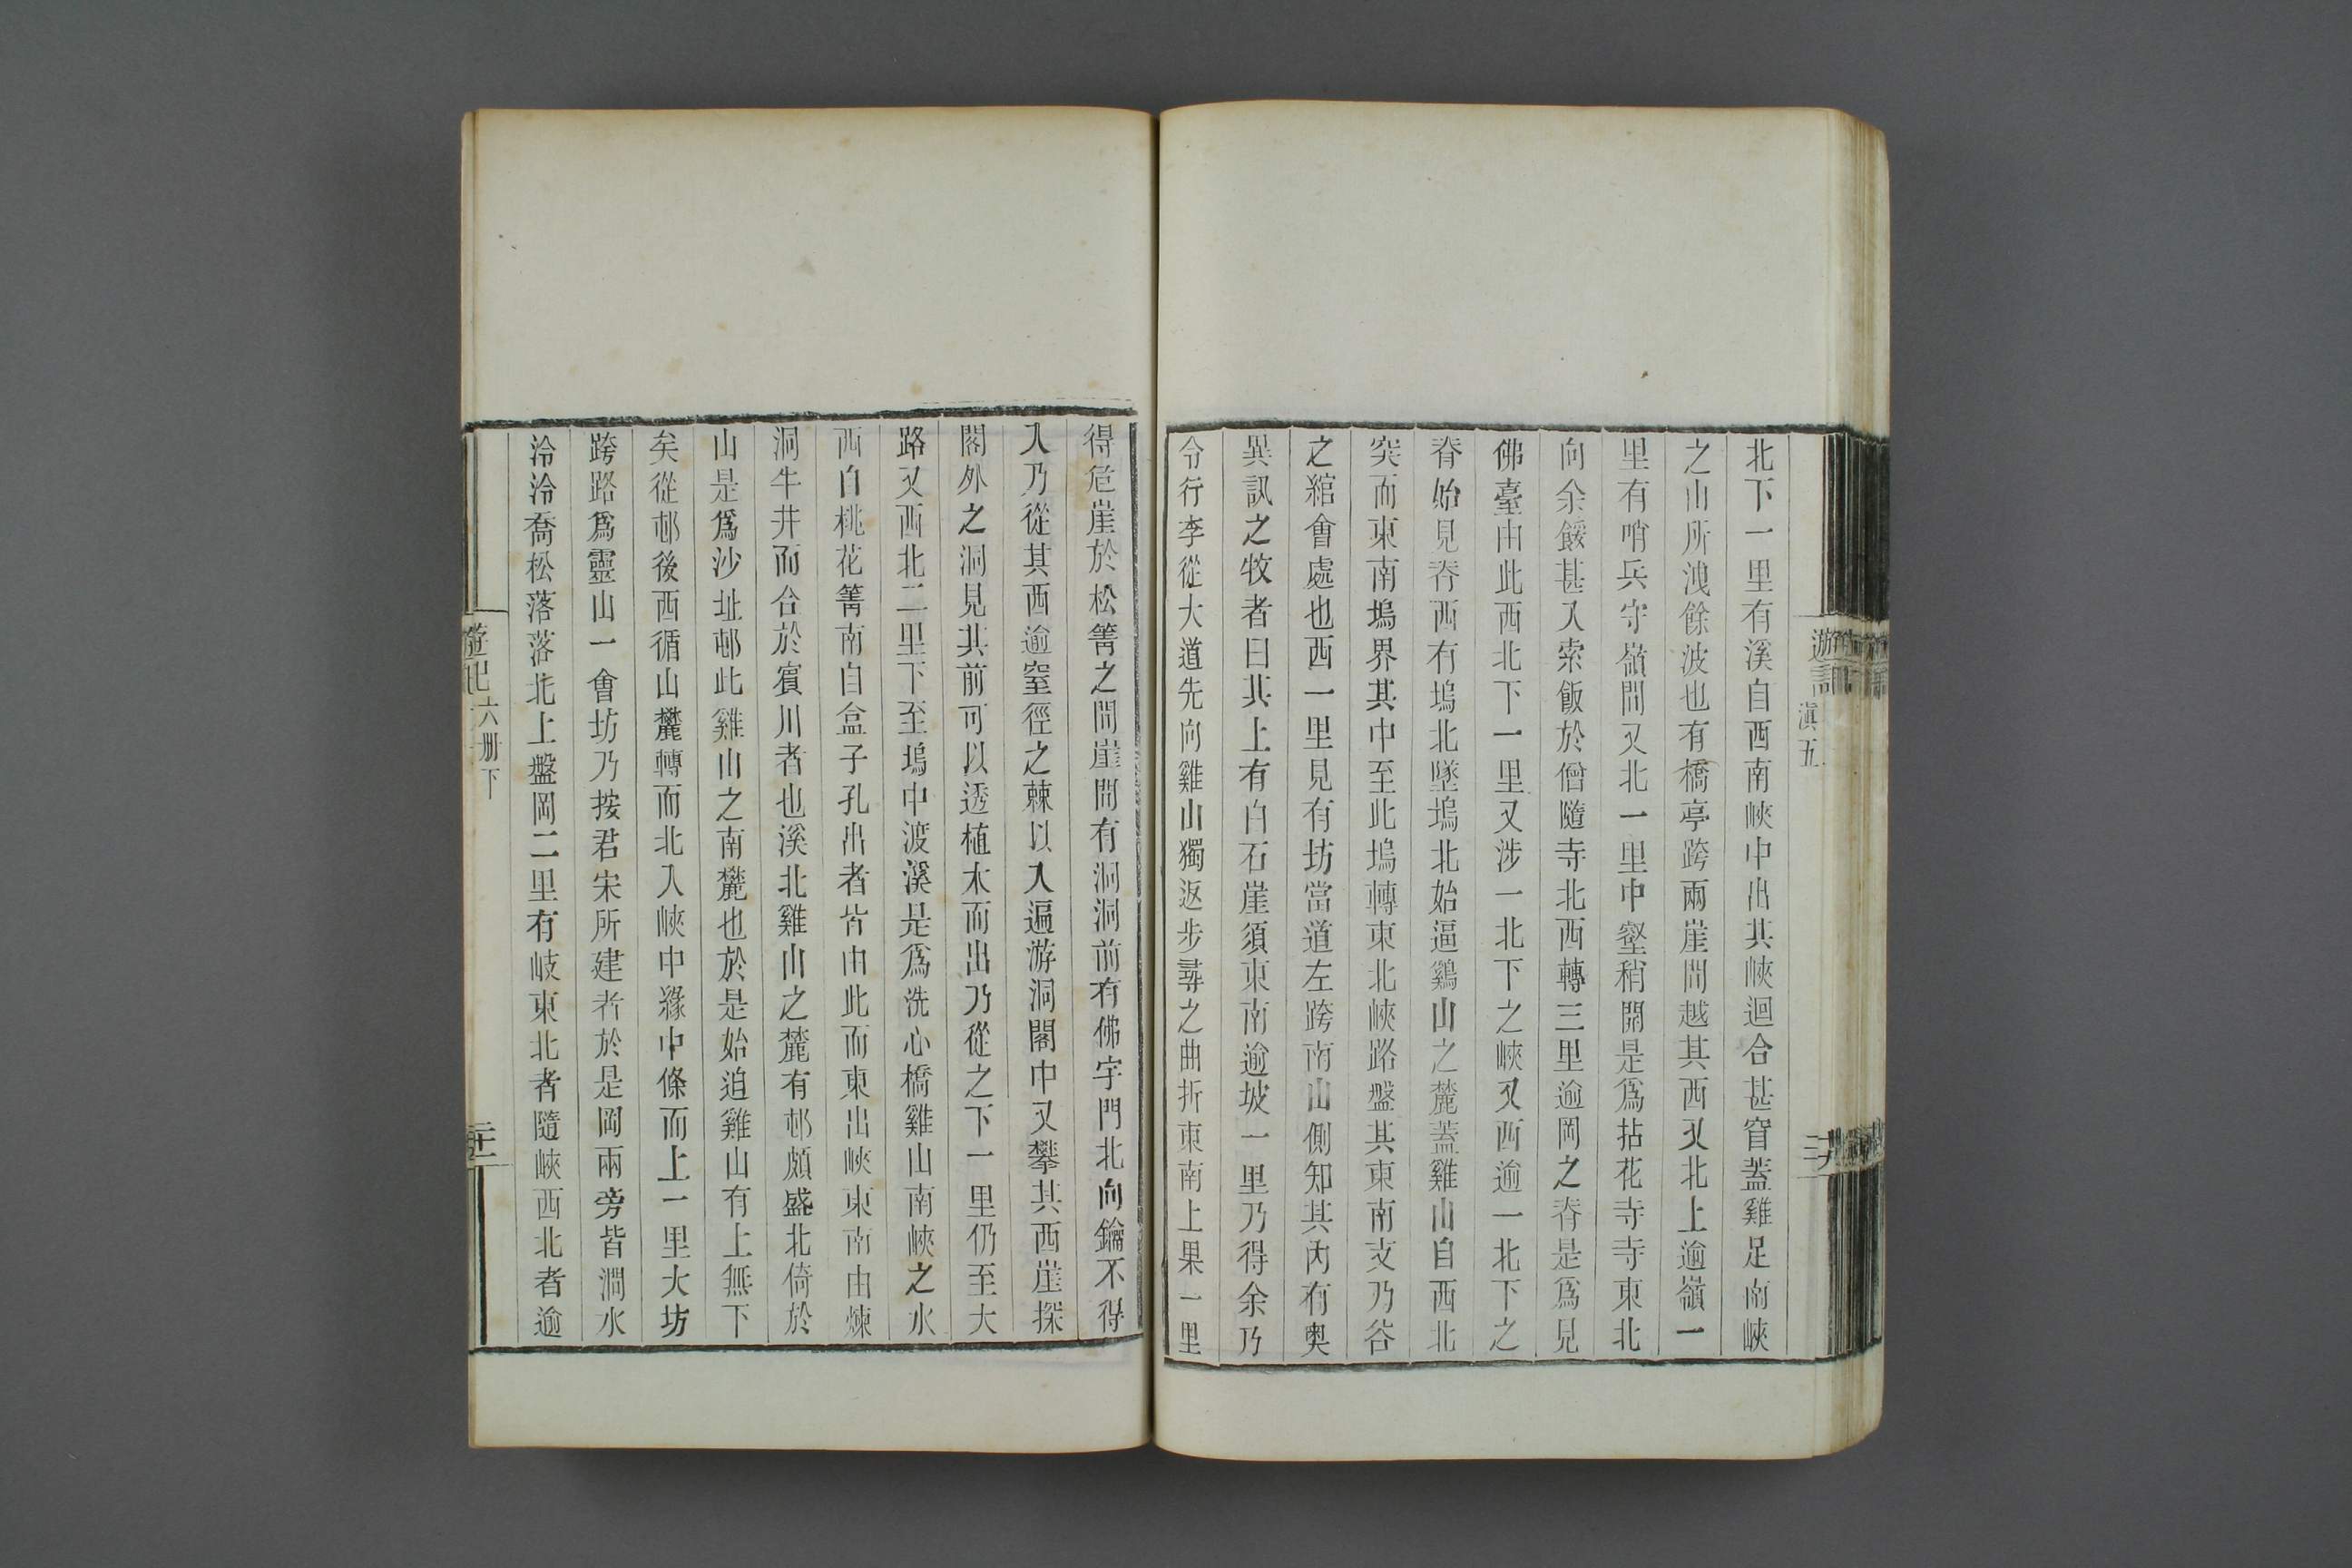 遊記
滇五
二十
北下一里有溪自西南峽中出其峽迴合甚窅蓋雞足南峽
之山所洩餘波也有橋亭跨兩崖間越其西又北上逾嶺一
里有哨兵守嶺間又北一里中壑稍開是爲拈花寺寺東北
向余餒甚入索飯於僧隨寺北西轉三里逾岡之脊是爲見
佛臺由此西北下一里又涉一北下之峽又西逾一北下之
脊始見脊西有塢北墜塢北始逼鷄山之麓蓋雞山自西北
突而東南塢界其中至此塢轉東北峽路盤其東南支乃谷
之綰會處也西一里見有坊當道左跨南山側知其內有奥
異訊之牧者曰其上有白石崖須東南逾坡一里乃得余乃
令行李從大道先向雞山獨返步尋之曲折東南上果一里
得危崖於松箐之間崖間有洞洞前有佛宇門北向鑰不得
入乃從其西逾窒徑之棘以入遍游洞閣中又攀其西崖探
閣外之洞見其前可以透植木而出乃從之下一里仍至大
路又西北二里下至塢中渡溪是爲洗心橋雞山南峽之水
西自桃花箐南自盒子孔出者皆由此而東出峽東南由煉
洞牛井而合於賓川者也溪北雞山之麓有邨頗盛北倚於
山是爲沙址邨此雞山之南麓也於是始迫雞山有上無下
矣從邨後西循山麓轉而北入峽中緣中條而上一里大坊
跨路爲靈山一會坊乃按君宋所建者於是岡兩旁皆澗水
泠泠喬松落落北上盤岡二里有岐東北者隨峽西北者逾
遊記
六册下